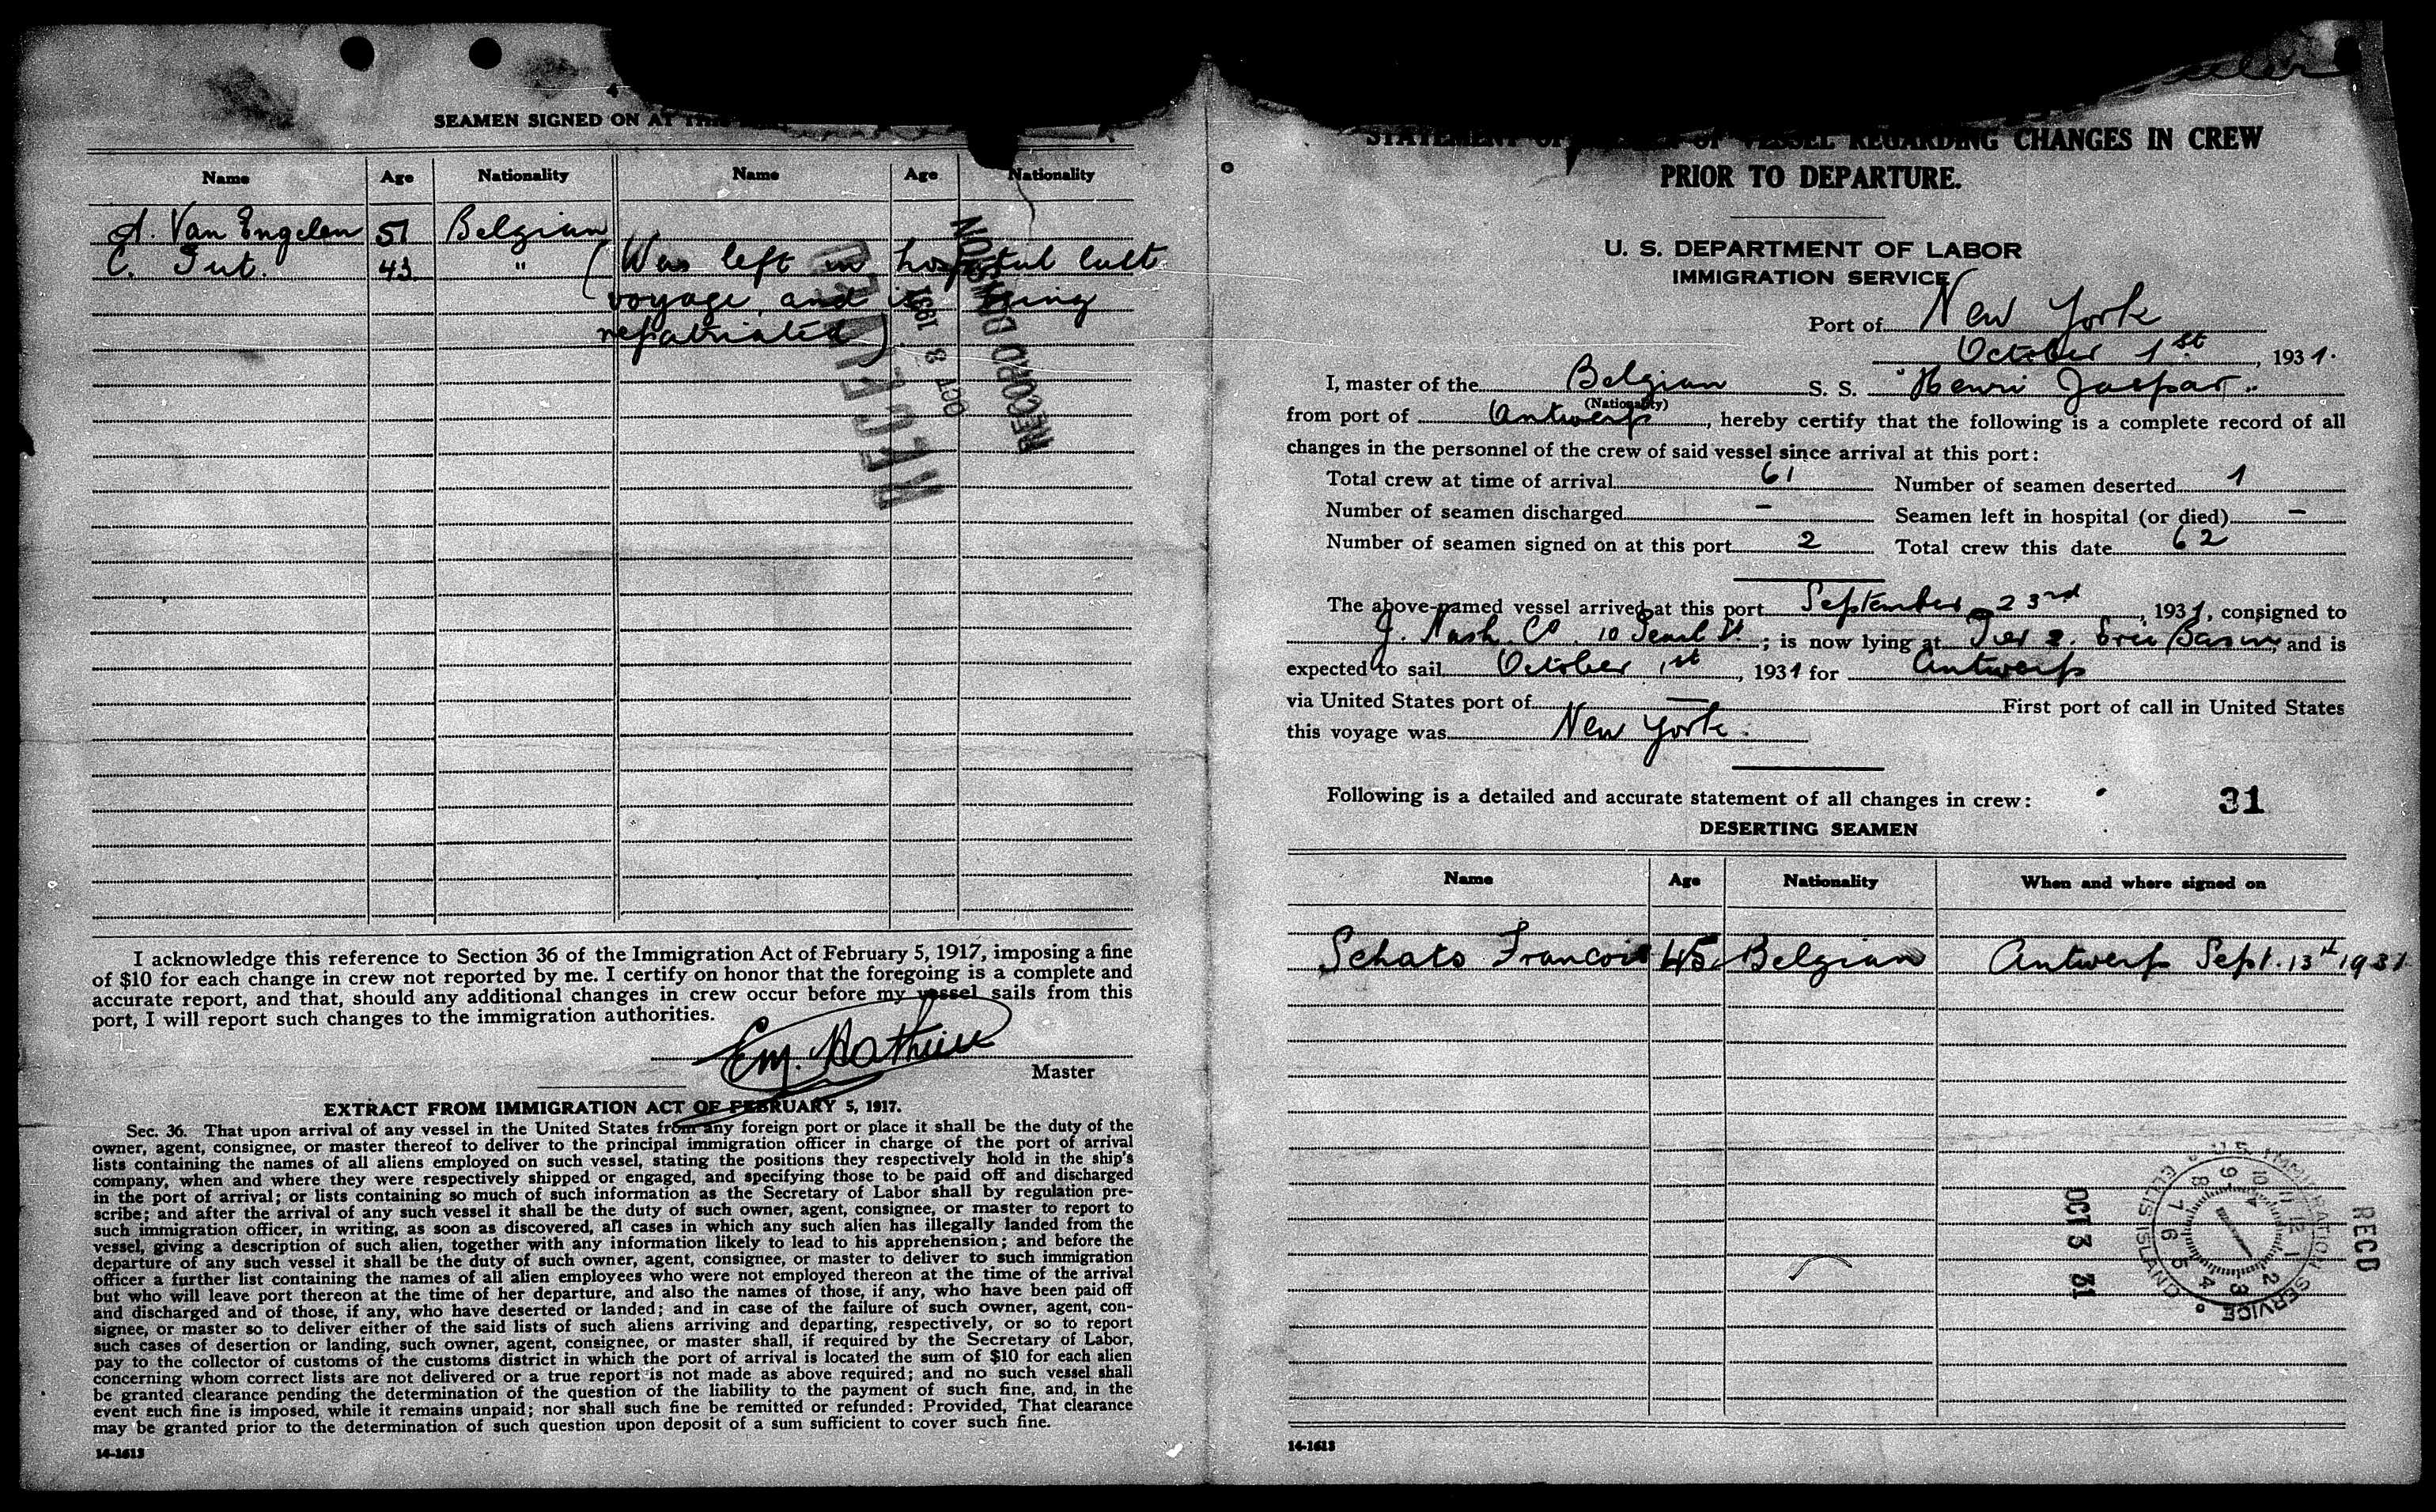 4
SEAMEN SIGNED ON AT THIS
Name Age Nationality Name Age Nationality
A. Van Engelen 51 Belgian
C. Put. 43 " (Was left in hospital last
voyage and is being
repatriated)
RECEIVED
OCT 3 1931
RECORD DIVISION
I acknowledge this reference to Section 36 of the Immigration Act of February 5, 1917, imposing a fine
of $10 for each change in crew not reported by me. I certify on honor that the foregoing is a complete and
accurate report, and that, should any additional changes in crew occur before my vessel sails from this
port, I will report such changes to the immigration authorities.
Em. Mathieu
Master
EXTRACT FROM IMMIGRATION ACT OF FEBRUARY 5, 1917.
Sec. 36. That upon arrival of any vessel in the United States from any foreign port or place it shall be the duty of the
owner, agent, consignee, or master thereof to deliver to the principal immigration officer in charge of the port of arrival
lists containing the names of all aliens employed on such vessel, stating the positions they respectively hold in the ship's
company, when and where they were respectively shipped or engaged, and specifying those to be paid off and discharged
in the port of arrival; or lists containing so much of such information as the Secretary of Labor shall by regulation pre-
scribe; and after the arrival of any such vessel it shall be the duty of such owner, agent, consignee, or master to report to
such immigration officer, in writing, as soon as discovered, all cases in which any such alien has illegally landed from the
vessel, giving a description of such alien, together with any information likely to lead to his apprehension; and before the
departure of any such vessel it shall be the duty of such owner, agent, consignee, or master to deliver to such immigration
officer a further list containing the names of all alien employees who were not employed thereon at the time of the arrival
but who will leave port thereon at the time of her departure, and also the names of those, if any, who have been paid off
and discharged and of those, if any, who have deserted or landed; and in case of the failure of such owner, agent, con-
signee, or master so to deliver either of the said lists of such aliens arriving and departing, respectively, or so to report
such cases of desertion or landing, such owner, agent, consignee, or master shall, if required by the Secretary of Labor,
pay to the collector of customs of the customs district in which the port of arrival is located the sum of $10 for each alien
concerning whom correct lists are not delivered or a true report is not made as above required; and no such vessel shall
be granted clearance pending the determination of the question of the liability to the payment of such fine, and, in the
event such fine is imposed, while it remains unpaid; nor shall such fine be remitted or refunded: Provided, That clearance
may be granted prior to the determination of such question upon deposit of a sum sufficient to cover such fine.
14-1613
STATEMENT OF OF VESSEL REGARDING CHANGES IN CREW
PRIOR TO DEPARTURE.
U. S. DEPARTMENT OF LABOR
IMMIGRATION SERVICE
Port of New York
October 1st, 1931.
I, master of the Belgian S. S. "Henri Jaspar"
(Nationality)
from port of Antwerp, hereby certify that the following is a complete record of all
changes in the personnel of the crew of said vessel since arrival at this port:
Total crew at time of arrival 61 Number of seamen deserted 1
Number of seamen discharged - Seamen left in hospital (or died) -
Number of seamen signed on at this port 2 Total crew this date 62
The above-named vessel arrived at this port September 23rd, 1931, consigned to
J. Nash Co. 10 Pearl St.; is now lying at Pier 2. Erie Basin, and is
expected to sail October 1st, 1931 for Antwerp
via United States port of — First port of call in United States
this voyage was New York.
Following is a detailed and accurate statement of all changes in crew:
31
DESERTING SEAMEN
Name Age Nationality When and where signed on
Schats Francois 45 Belgian Antwerp Sept. 13th 1931.
RECD
OCT 3 31
U.S. IMMIGRATION SERVICE
ELLIS ISLAND
1 2 3 4 5 6 7 8 9 10 11 12
14-1613